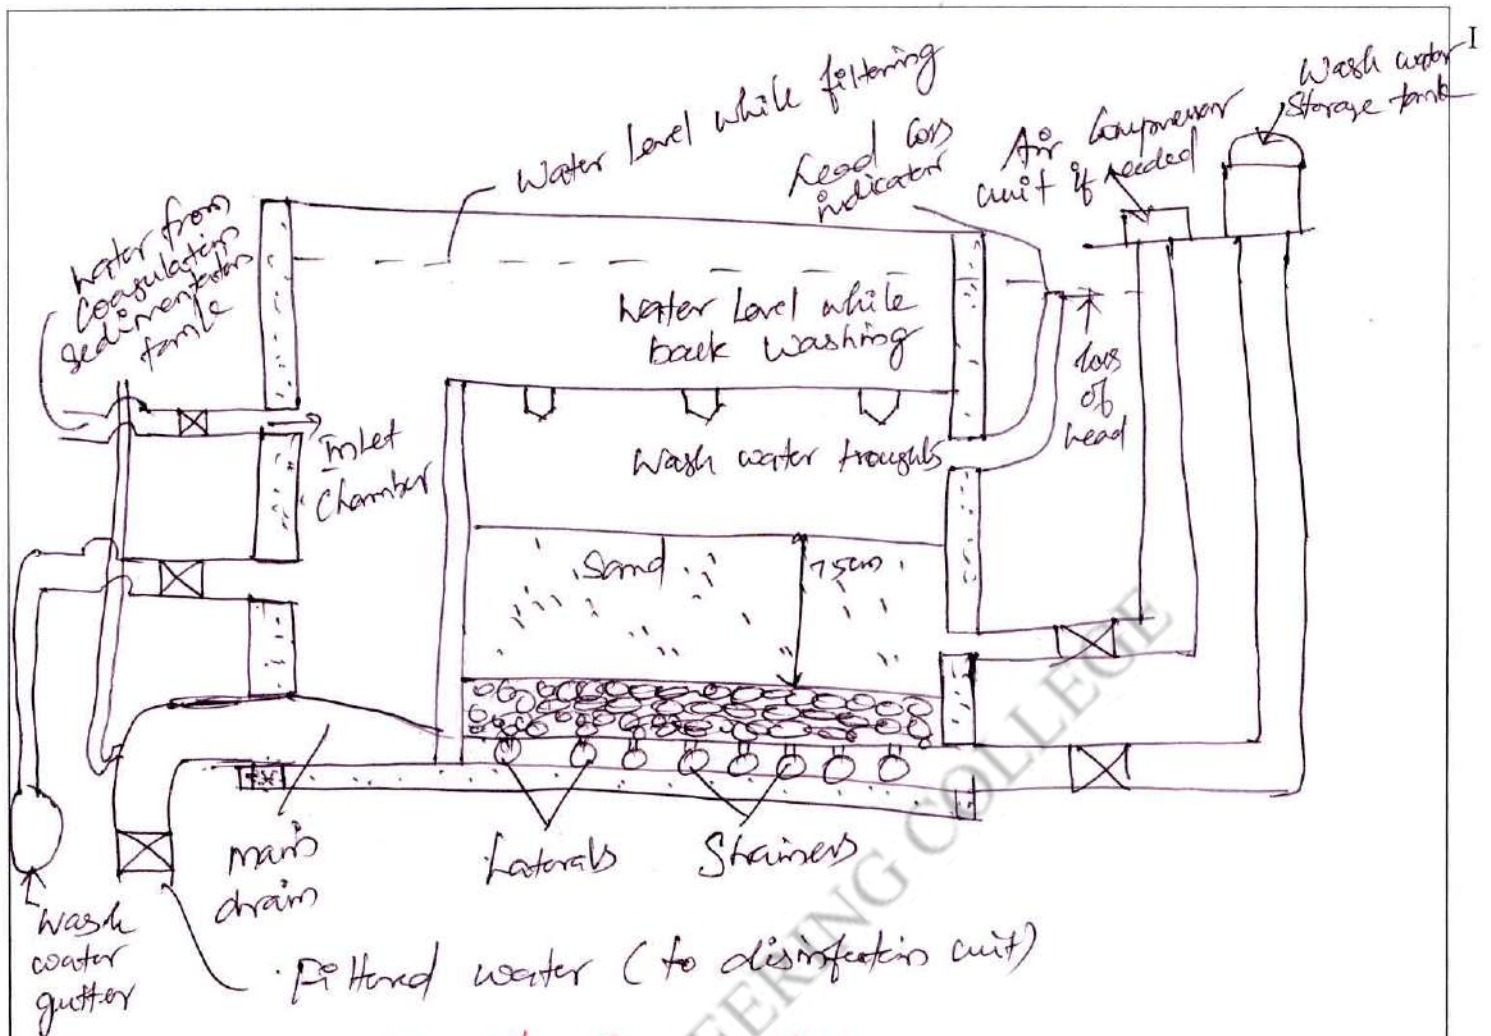 I
Water level while filtering
head loss
indicator
Air Compressor
unit if needed
Wash water
Storage tank
water from
Coagulation
sedimentation
tank
Water Level while
back washing
loss
of
head
Inlet
Chamber
Wash water troughs
Sand
75cm
main
drain
Laterals
Strainers
Wash
water
gutter
Filtered water (to disinfection unit)
EERING COLLEGE